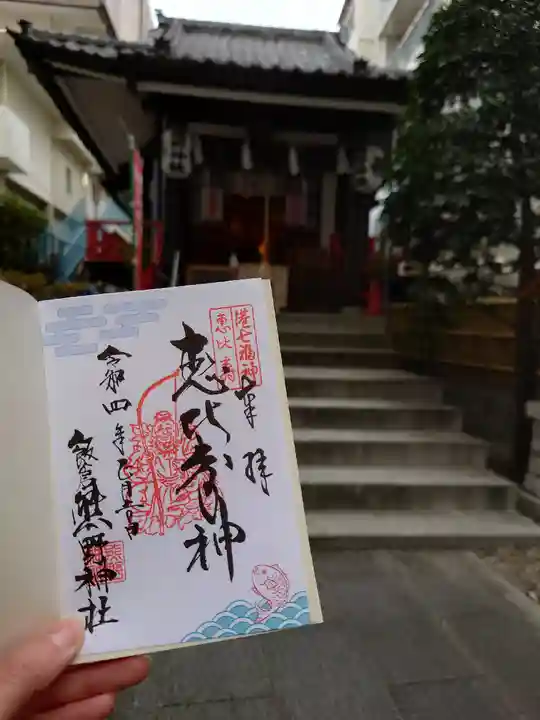 港七福神
恵比寿
奉拝
恵比寿神
令和四年
飯倉熊野神社
熊野